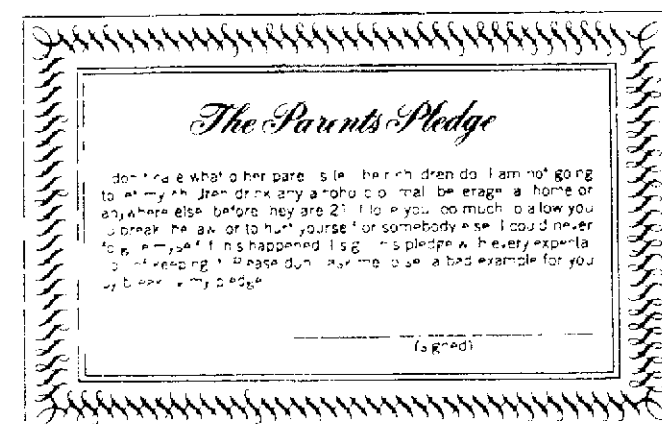 The Parents Pledge
what other let children do I am not going
to let my children drink any alcoholic or malt beverage at home or
anywhere else before they are 21 I love you too much to allow you
to break the law or to hurt yourself or somebody else I could never
forgive myself if this happened I sign this pledge with every expecta
of keeping it Please don't ask me to set a bad example for you
by breaking my pledge
(signed)